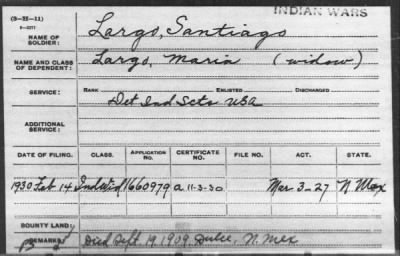 INDIAN WARS
(3-H-11)
NAME OF SOLDIER: Largo, Santiago
NAME AND CLASS OF DEPENDENT: Largo, Maria (widow)
SERVICE: RANK ENLISTED DISCHARGED
Det Ind Scts USA
ADDITIONAL SERVICE:
DATE OF FILING. CLASS. APPLICATION NO. CERTIFICATE NO. FILE NO. ACT. STATE.
1930 Feb 14 1660979 a 11-3-30 Mar 3-27 N Mex
BOUNTY LAND:
REMARKS: Died Sept. 19, 1909, Dulce, N. Mex